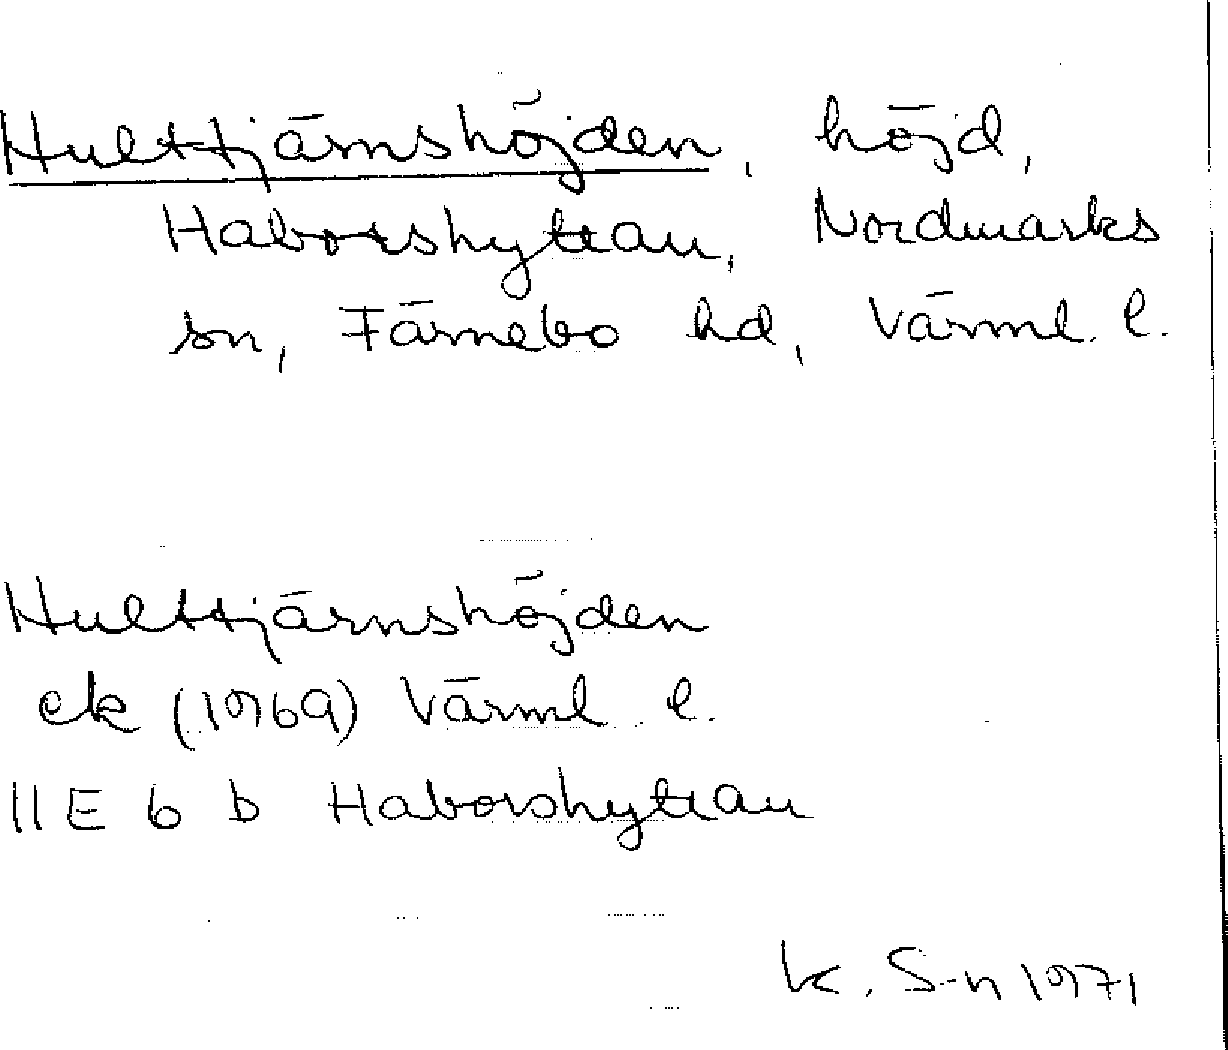 Hulttjärnshöjden, höjd,
Haborshyttan, Nordmarks
sn, Färnebo hd, Värml. l.
Hulttjärnshöjden
ek (1969) Värml. l.
11E 6 b Haborshyttan
K. S-n 1971